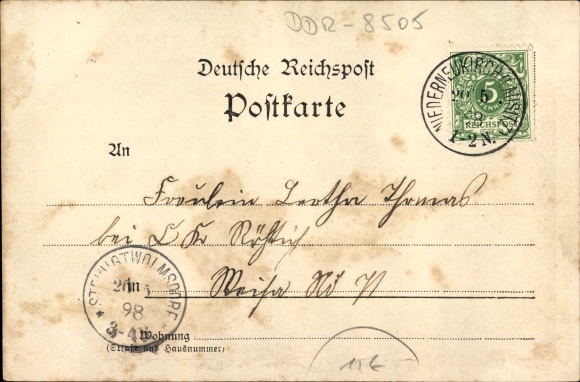 DDR-8505
Deutsche Reichspost
Postkarte
NIEDERNEUKIRCH (LAUSITZ)
20 5
98
1-2N.
5
REICHSPOST
An
Fräulein Bertha Thomas
bei
Weifa
STEINIGTWOLMSDORF
in
20 5
98
3-4
Wohnung
(Straße und Hausnummer)